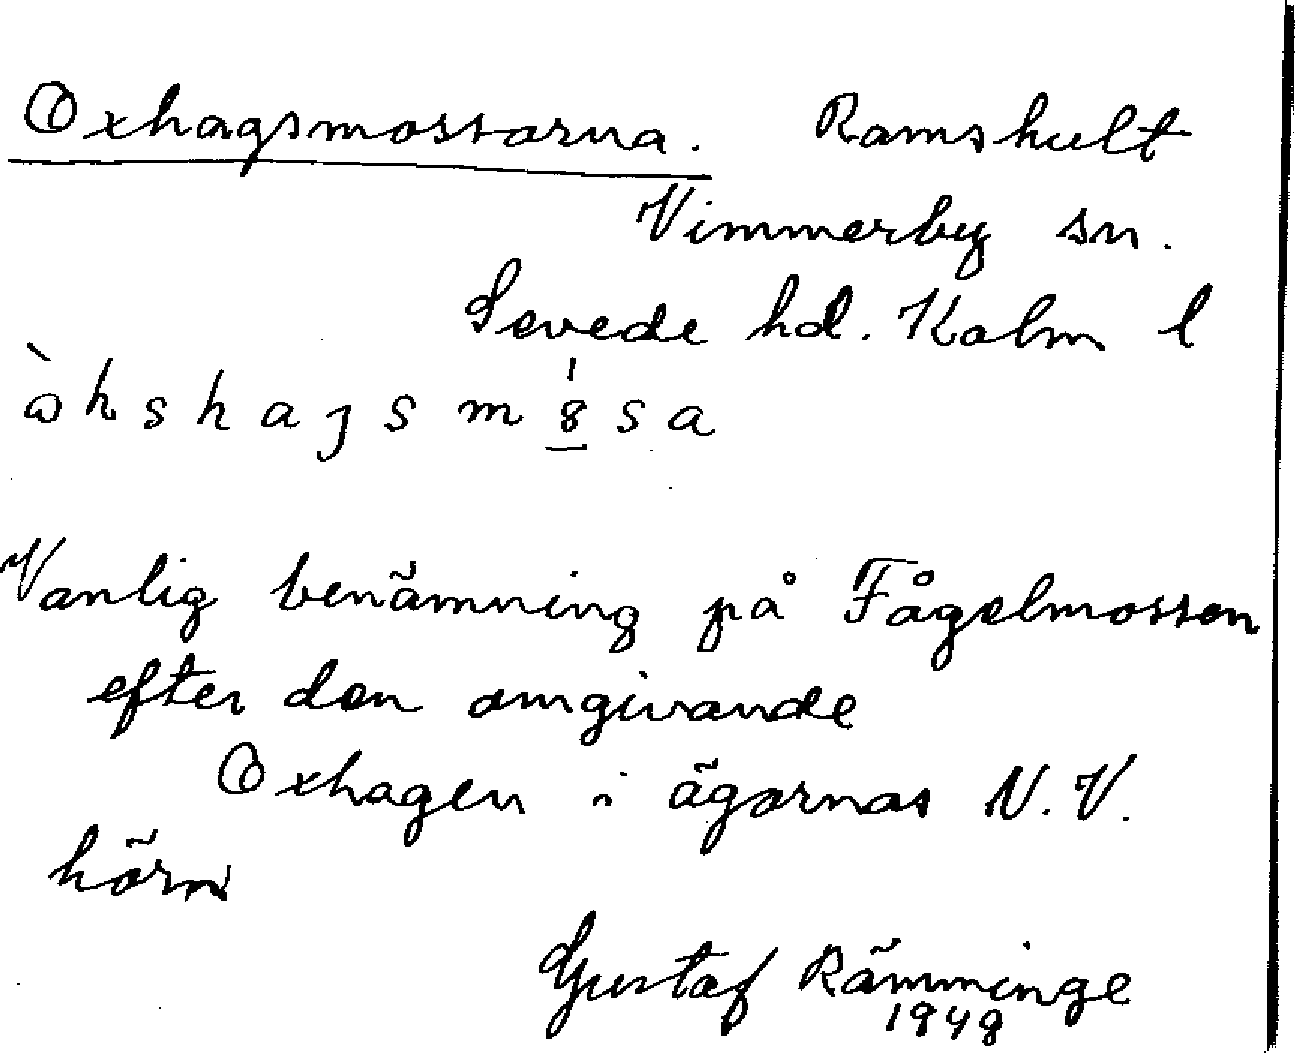 Oxhagsmossarna. Ramshult
Vimmerby sn.
Sevede hd. Kalm l
òkshaȷsm8̲sa
Vanlig benämning på Fågelmossen
efter den omgivande
Oxhagen i ägornas N.V.
hörn
Gustaf Rämminge
1948